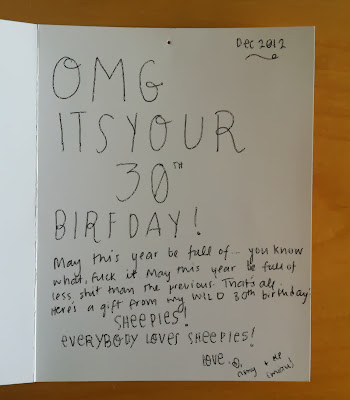 Dec 2012
OMG
ITS YOUR
30TH
BIRFDAY!
May this year be full of... you know
what, fuck it May this year be full of
less shit than the previous. That's all.
Here's a gift from my WILD 30th birthday:
SHEEPIES!
EVERYBODY LOVES SHEEPIES!
love.
amy +
(mow)